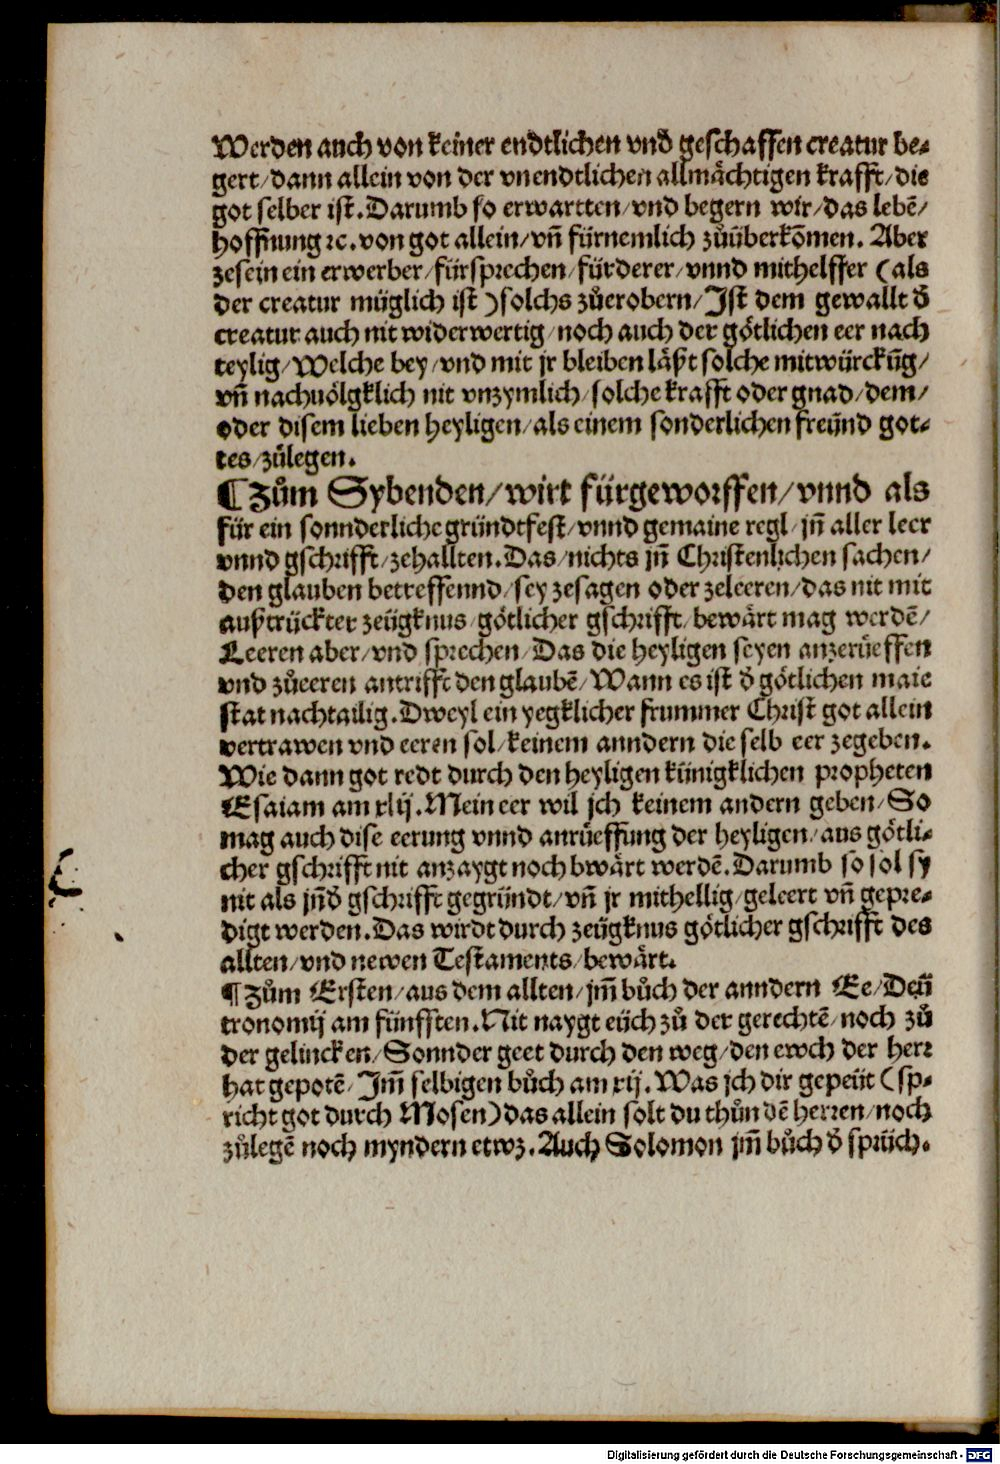 Werden auch von keiner endtlichen vnd̄ geschaffen creatur be⸗
gert/dann allein von der vnendtlichen allmåchtigen krafft/die
got selber ist. Darumb so erwartten/vnd begern wir/das lebē/
hoffnung ⁊c. von got allein/vn̄ fürnemlich zůüberkōmen. Aber
zesein ein erwerber/fürsprechen/fürderer/vnnd mithelffer (als
der creatur müglich ist) solchs zůerobern/Ist dem gewallt d̄
creatur auch nit widerwertig/noch auch der götlichen eer nach
teylig/Welche bey/vnd mit jr bleiben låßt solche mitwürckūg/
vn̄ nachuölgklich nit vnzymlich/solche krafft oder gnad/dem/
oder disem lieben heyligen/als einem sonderlichen freünd got⸗
tes/zůlegen.
¶ Zům Sybenden/wirt fürgeworffen/vnnd als
für ein sonnderliche gründtfest/vnnd gemaine regl/jn̄ aller leer
vnnd gschrifft/zehallten. Das/nichts jn̄ Christenlichen sachen/
den glauben betreffennd/sey zesagen oder zeleeren/das nit mit
außtrückter zeügknus götlicher gschrifft/bewårt mag werdē/
Leeren aber/vnd sprechen/Das die heyligen seyen anzerüeffen
vnd zůeeren antrifft den glaubē/Wann es ist d̄ götlichen maie
stat nachtailig. Dweyl ein yegklicher frummer Christ got allein
vertrawen vnd eeren sol/keinem anndern die selb eer zegeben.
Wie dann got redt durch den heyligen künigklichen propheten
Esaiam am xlij. Mein eer wil jch keinem andern geben/So
mag auch dise eerung vnnd anrüeffung der heyligen/aus götli⸗
cher gschrifft nit anzaygt noch bwårt werdē. Darumb so sol sy
nit als jn̄d̄ gschrifft gegründt/vn̄ jr mithellig/geleert vn̄ gepre⸗
digt werden. Das wirdt durch zeügknus götlicher gschrifft des
allten/vnd newen Testaments/bewårt.
¶ Zům Ersten/aus dem allten/jm̄ bůch der anndern Ee/Deū
tronomij am fünfften. Nit naygt eüch zů der gerechtē/noch zů
der gelincken/Sonnder geet durch den weg/den ewch der herr
hat gepotē/Im̄ selbigen bůch am xij. Was jch dir gepeüt (sp⸗
richt got durch Mosen) das allein solt du thůn dē herren/noch
zůlegē noch myndern etwz. Auch Solomon jm̄ bůch d̄ sprüch.
Digitalisierung gefördert durch die Deutsche Forschungsgemeinschaft - DFG